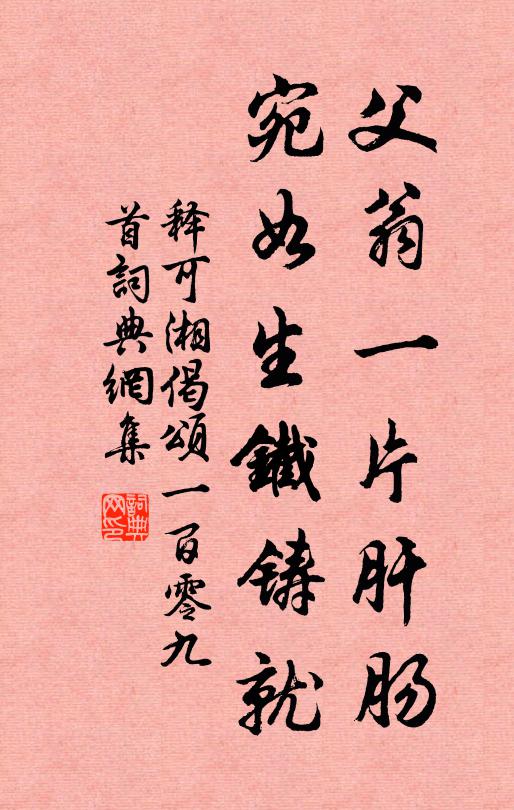 父翁一片肝肠
宛如生鐵铸就
释可湘偈颂一百零九
首詞典網集
詞典
网印